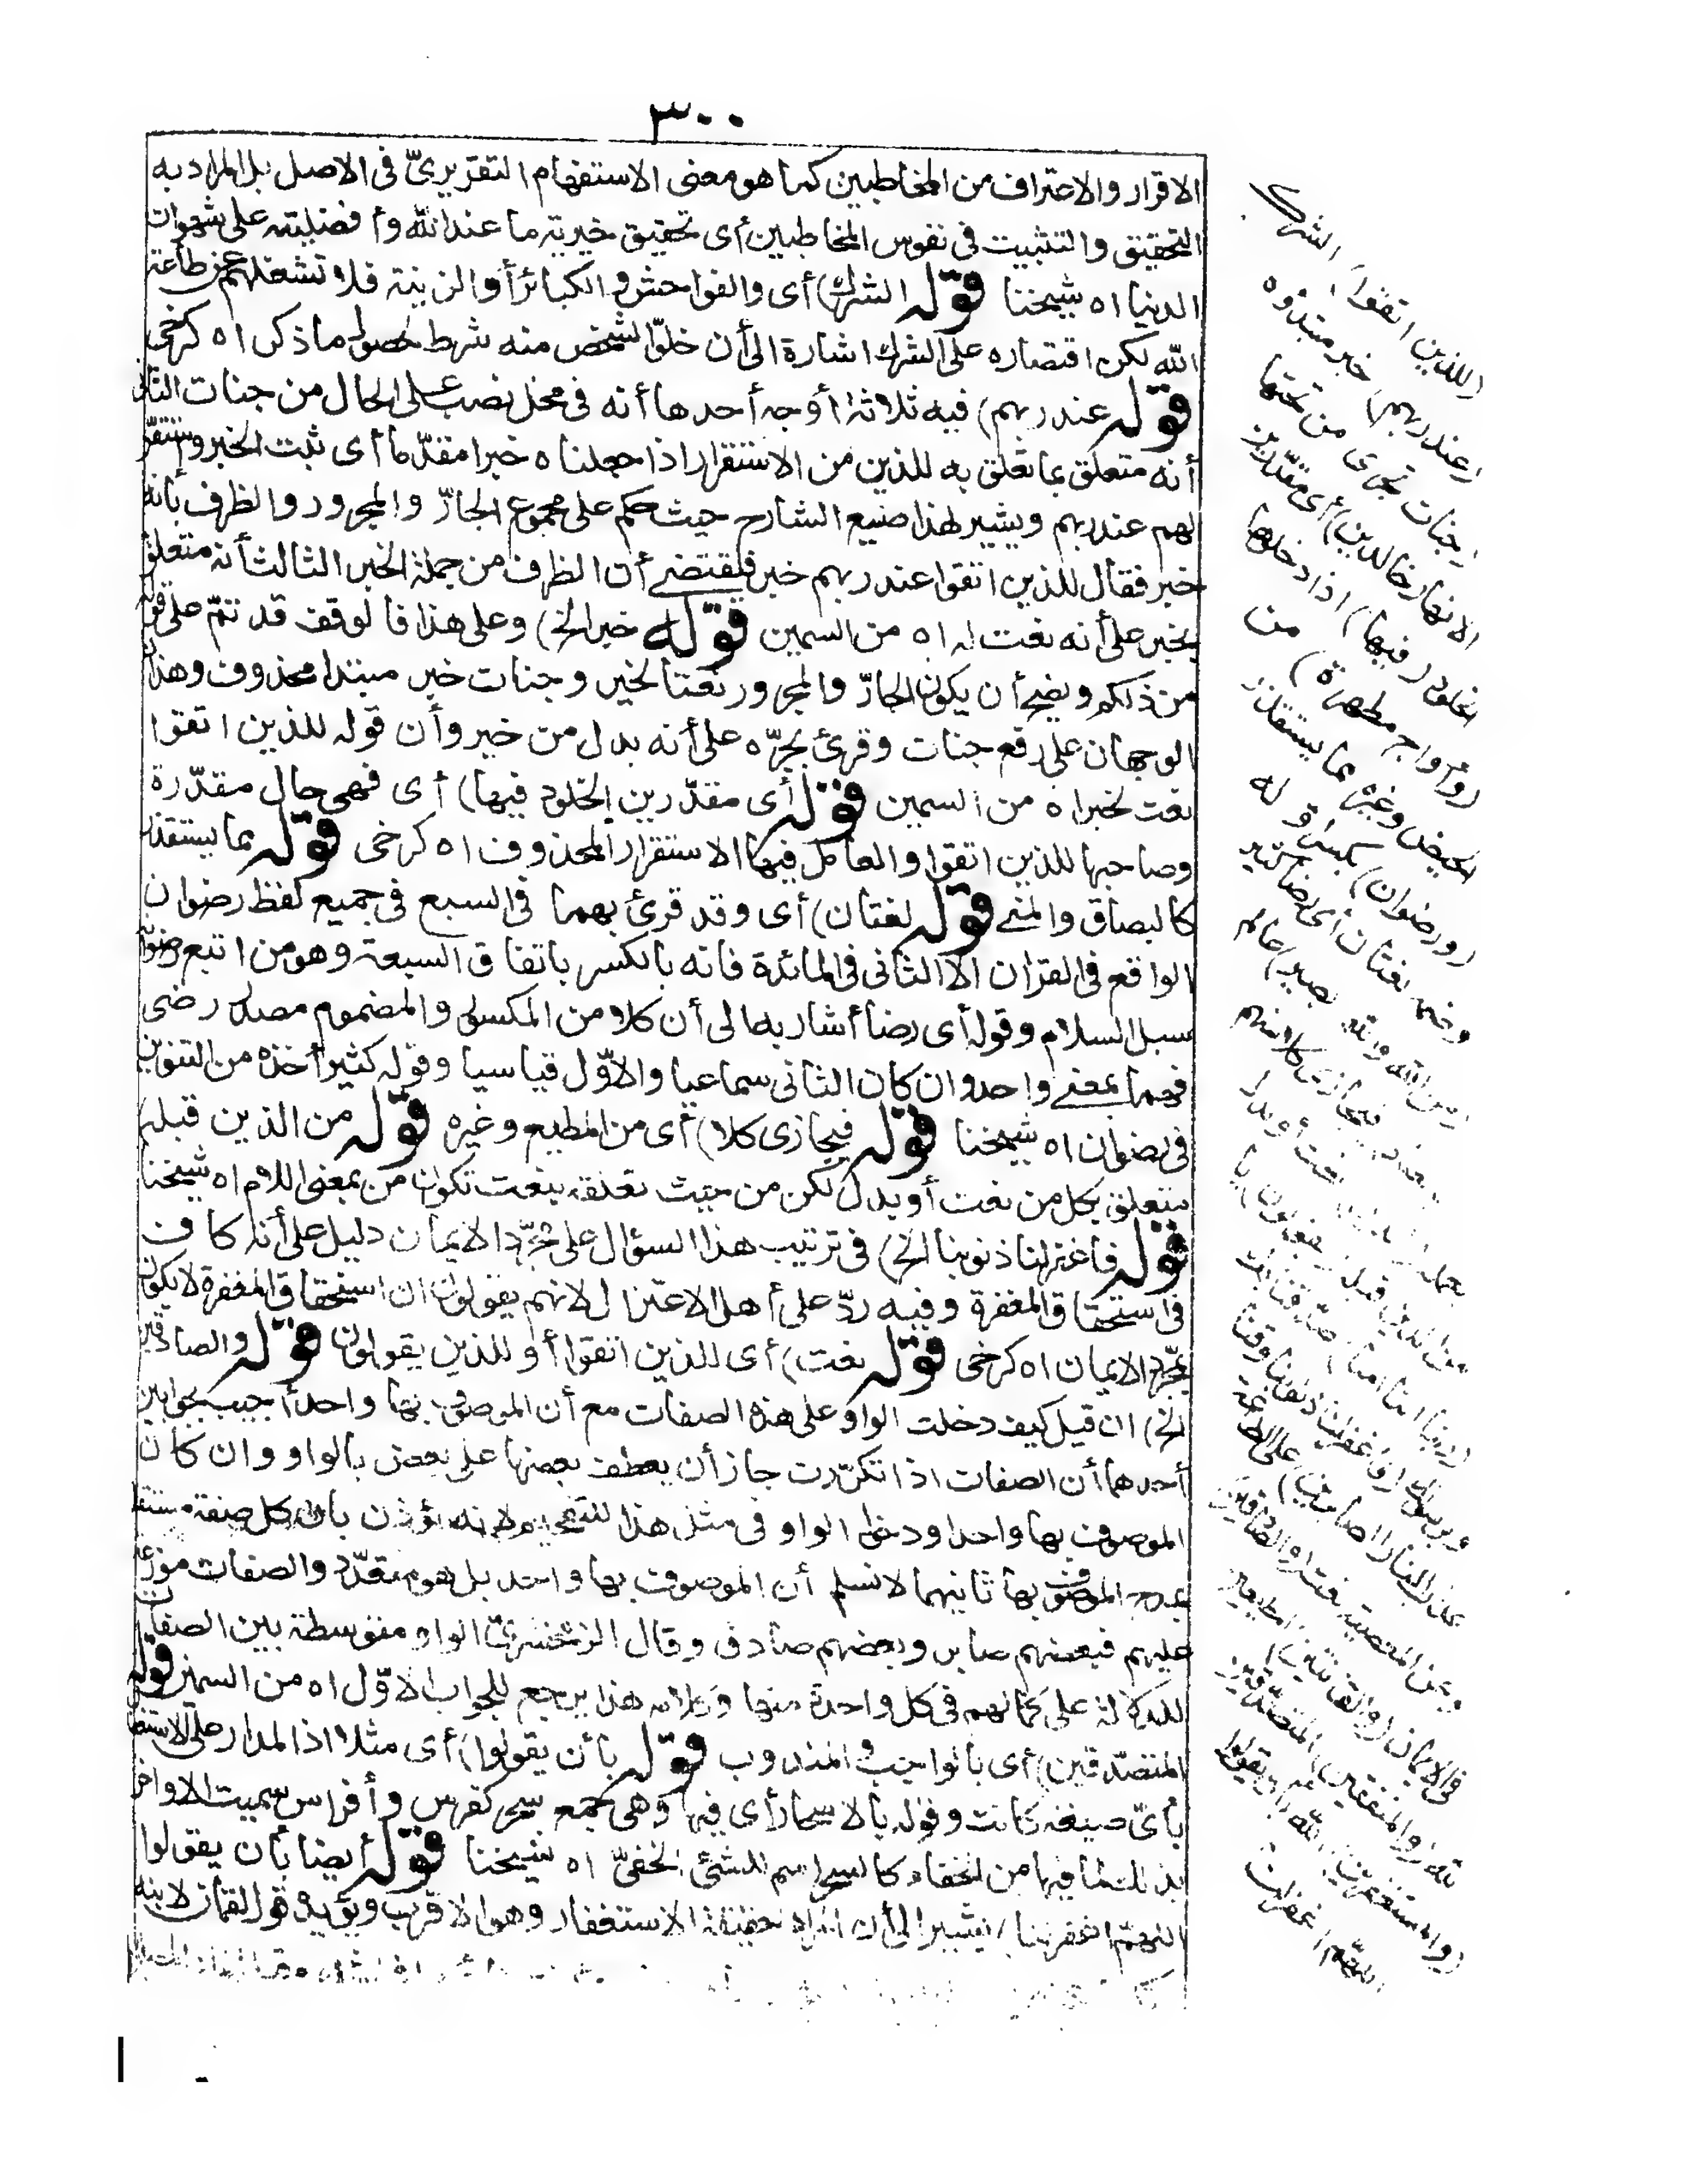 ٣٠٠
الاقرار والاعتراف من المخاطبين كما هو معنى الاستفهام التقريريّ فى الاصل بل المراد به
التحقيق والتثبيت فى نفوس المخاطبين أى تحقيق خيرية ما عند الله وأفضليته على شهوات
الدنيا اه شيخنا قوله الشرك) أى والفواحش والكبائر أو الزينة فلا تشغلهم عن طاعة
الله لكن اقتصاره على الشرك اشارة الى أن خلوّ الشخص منه شرط لحصول ما ذكر اه كرخى
قوله عند ربهم) فيه ثلاثة أوجه أحدها أنه فى محل نصب على الحال من جنات الثانى
أنه متعلق بما تعلق به للذين من الاستقرار اذا جعلناه خبرا مقدّما أى ثبت الخبر واستقرّ
لهم عند ربهم ويشير لهذا صنيع الشارح حيث حكم على مجموع الجارّ والمجرور والظرف بأنه
خبر فقال للذين اتقوا عند ربهم خبر فيقتضى أن الظرف من جملة الخبر الثالث أنه متعلق
بخير على أنه نعت له اه من السمين قوله خير الخ) وعلى هذا فالوقف قد تمّ على قوله
من ذلكم ويضح أن يكون الجارّ والمجرور نعتا لخير وجنات خبر مبتدا محذوف وهذان
الوجهان على رفع جنات وقرئ بجرّه على أنه بدل من خير وأن قوله للذين اتقوا
نعت لخير اه من السمين قوله أى مقدّرين الخلود فيها) أى فهى حال مقدّرة
وصاحبها للذين اتقوا والعامل فيها الاستقرار المحذوف اه كرخى قوله مما يستقذر
كالبصاق والمنى قوله لغتان) أى وقد قرئ بهما فى السبع فى جميع لفظ رضوان
الواقع فى القران الا الثانى فى المائدة فانه بالكسر باتفاق السبعة وهو من اتبع رضوانه
سبل السلام وقوله أى رضا أشار به الى أن كلا من المكسور والمضموم مصدر رضى
فهما بمعنى واحد وان كان الثانى سماعيا والاوّل قياسيا وقوله كثير أخذه من التنوين
فى رضوان اه شيخنا قوله فيجازى كلا) أى من المطيع وغيره قوله من الذين قبله)
متعلق بكل من نعت أو بدل لكن من حيث تعلقه بنعت تكون من بمعنى اللام اه شيخنا
قوله فاغفر لنا ذنوبنا الخ) فى ترتيب هذا السؤال على مجرّد الايمان دليل على أنه كاف
فى استحقاق المغفرة وفيه ردّ على أهل الاعتزال لانهم يقولون ان استحقاق المغفرة لا يكون
بمجرّد الايمان اه كرخى قوله نعت) أى للذين اتقوا أو للذين يقولون قوله والصادقين
الخ) ان قيل كيف دخلت الواو على هذه الصفات مع أن الموصوف بها واحد أجيب بجوابين
أحدهما أن الصفات اذا تكرّرت جاز أن يعطف بعضها على بعض بالواو وان كان
الموصوف بها واحدا ودخول الواو فى مثل هذا للتفخيم لانه يؤذن بان كل صفة مستقلة
بمدح الموصوف بها ثانيهما لا نسلم أن الموصوف بها واحد بل هو متعدّد والصفات موزعة
عليهم فبعضهم صابر وبعضهم صادق وقال الزمخشرىّ الواو متوسطة بين الصفات
للدلالة على كمالهم فى كل واحدة منها وكلامه هذا يرجع للجواب الاوّل اه من السمين قوله
المتصدّقين) أى بالواجب والمندوب قوله بأن يقولوا) أى مثلا اذ المدار على الاستغفار
بأىّ صيغة كانت وقوله بالاسحار أى فيها وهى جمع سحر كفرس وأفراس سميت الاواخر
بذلك لما فيها من الخفاء كالسحر اسم للشئ الخفىّ اه شيخنا قوله أيضا بأن يقولوا
اللهمّ اغفر لنا) يشير الى أن المراد حقيقة الاستغفار وهو الاقرب ويؤيده قول لقمان لابنه
الشرك
(للذين اتقوا)
(عند ربهم) خبر مبتدؤه
(جنات تجرى من تحتها
الانهار خالدين) أى مقدّرين
الخلود (فيها) اذا دخلوها
(وأزواج مطهرة) من
الحيض وغيره مما يستقذر
(ورضوان) بكسر أوله
وضمه لغتان أى رضا كثير
(من الله والله بصير) عالم
(بالعباد) فيجازى كلا منهم
بعمله (الذين) نعت أو بدل
من الذين قبله (يقولون) يا
(ربنا اننا امنا) صدّقنا بك
وبرسولك (فاغفر لنا ذنوبنا وقنا
عذاب النار الصابرين) على الطاعة
وعن المعصية نعت (والصادقين)
فى الايمان (والقانتين) المطيعين
لله (والمنفقين) المتصدّقين
(والمستغفرين) الله بأن يقولوا
اللهمّ اغفر لنا